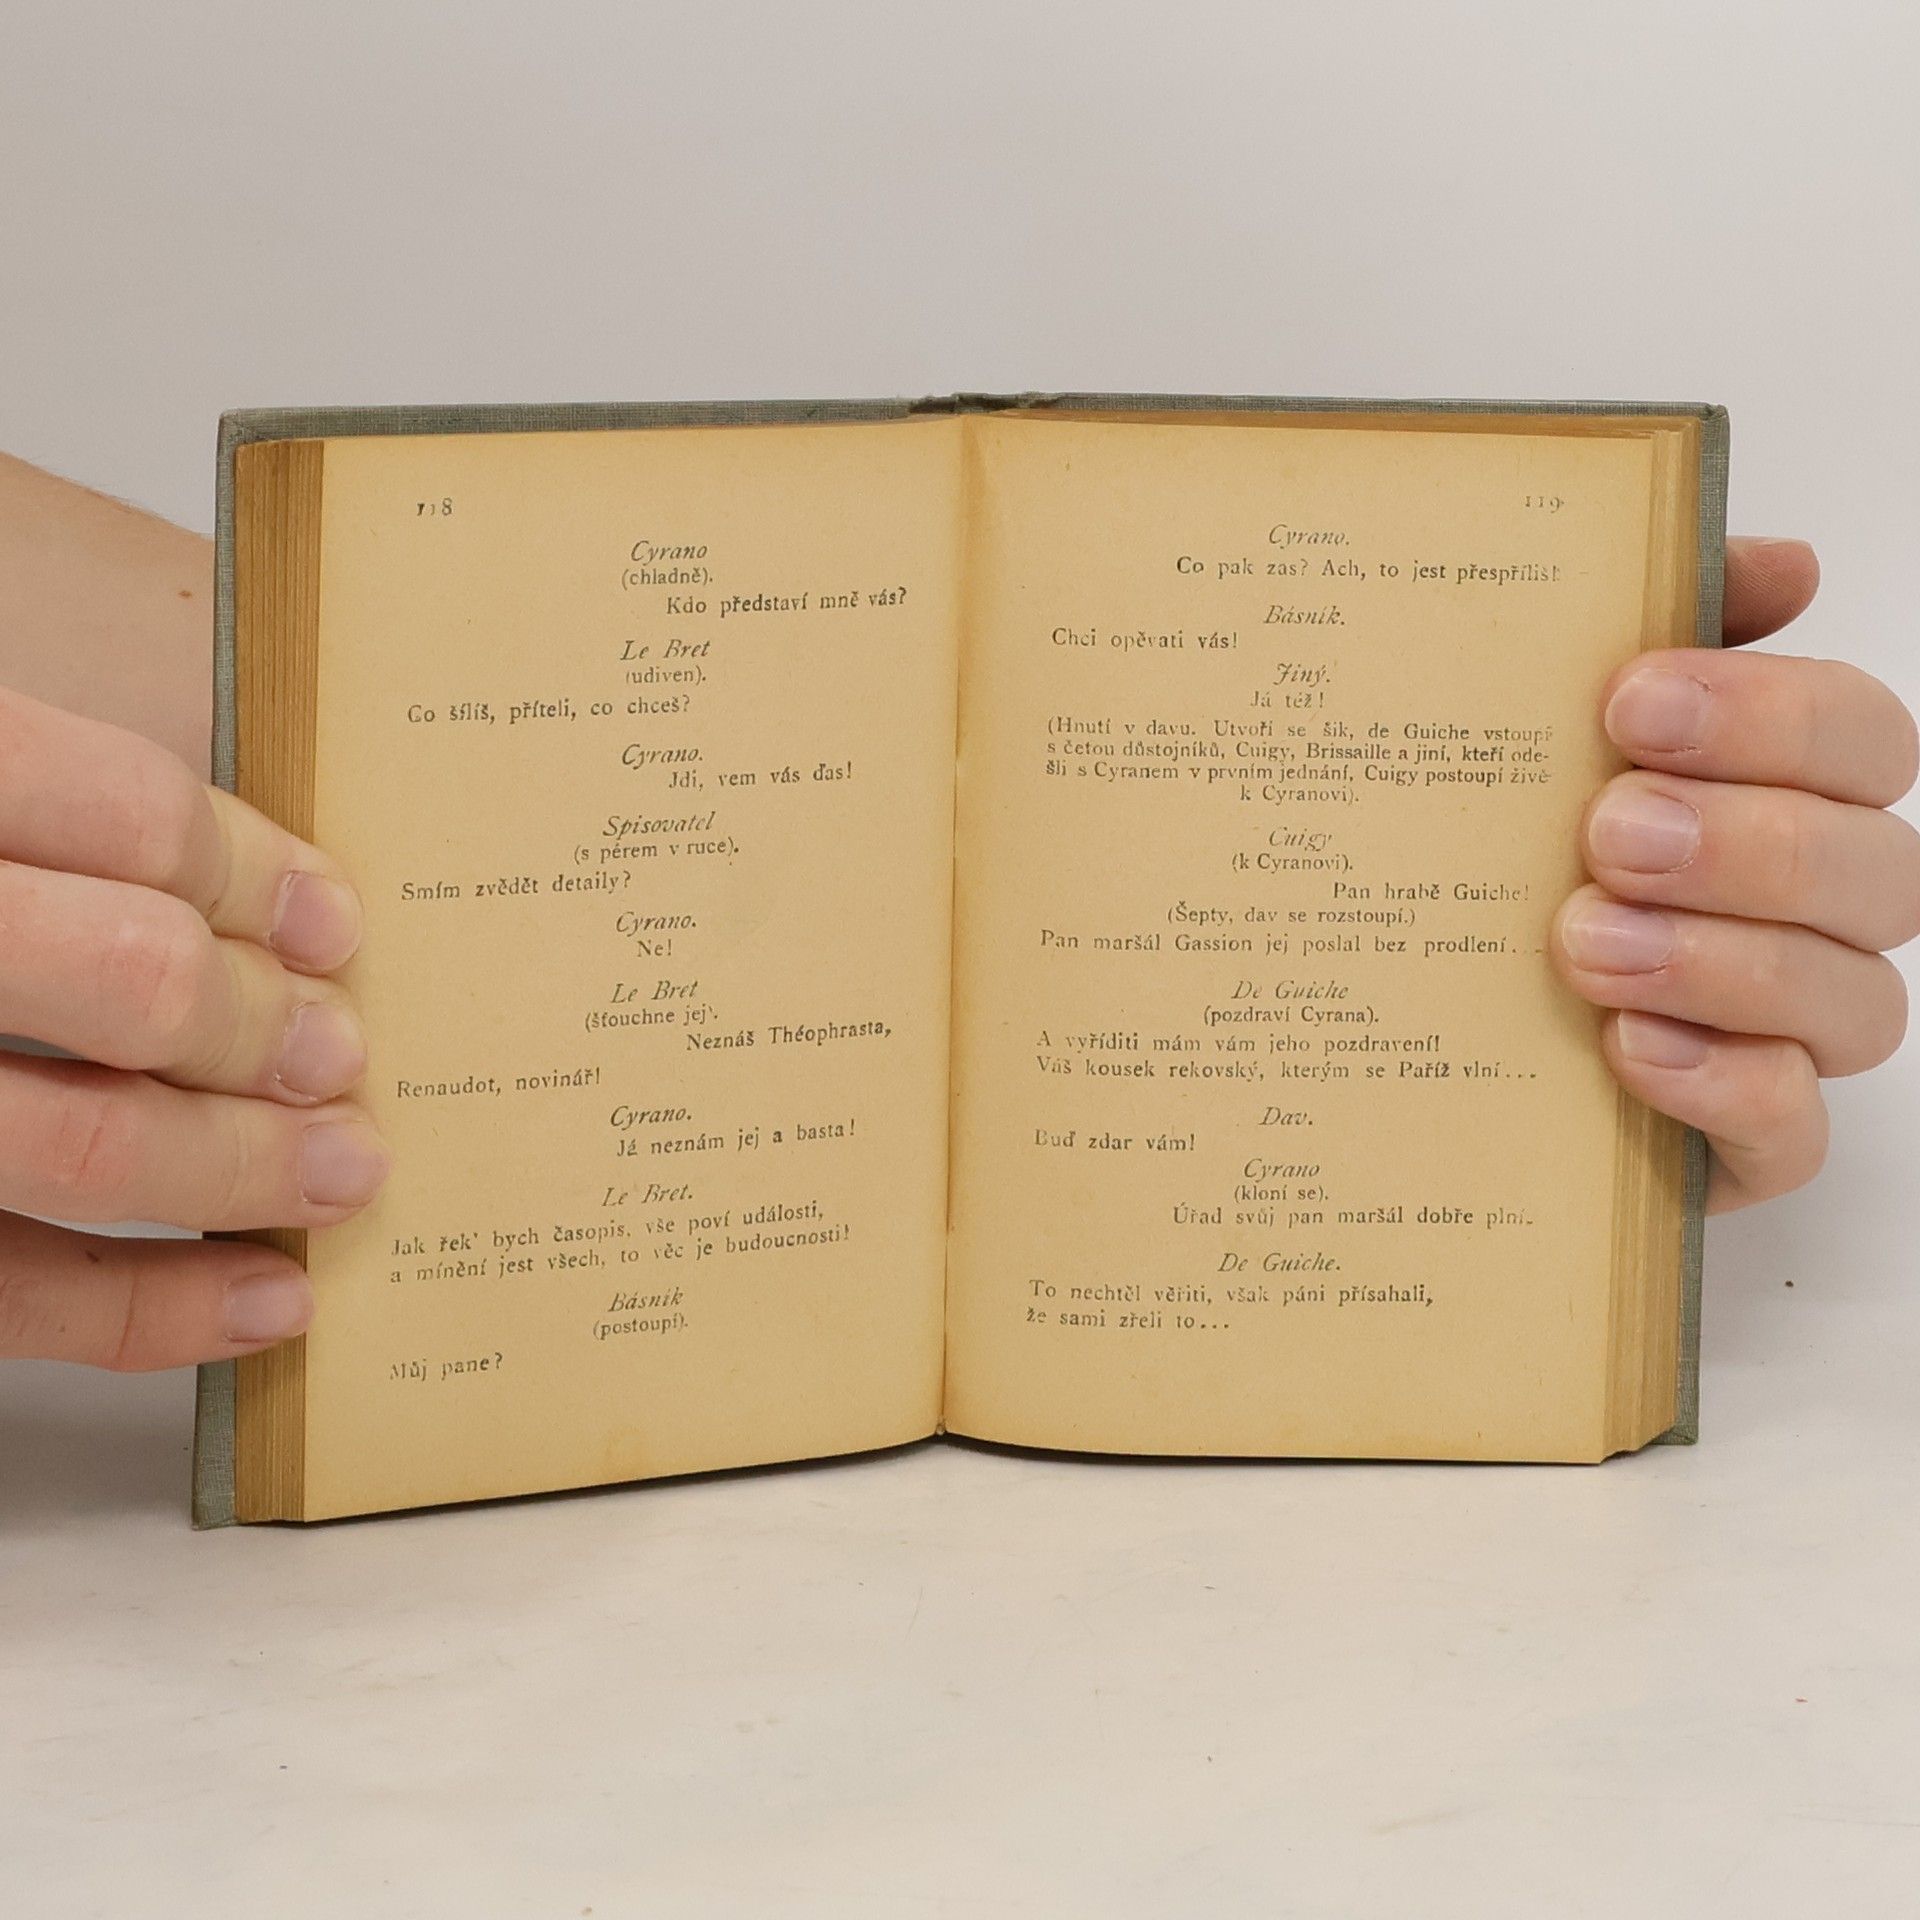 118
Cyrano
(chladně).
Kdo představí mně vás?
Le Bret
(udiven).
Co šílíš, příteli, co chceš?
Cyrano.
Jdi, vem vás ďas!
Spisovatel
(s pérem v ruce).
Smím zvědět detaily?
Cyrano.
Ne!
Le Bret
(šťouchne jej).
Neznáš Théophrasta,
Renaudot, novinář!
Cyrano.
Já neznám jej a basta!
Le Bret.
Jak řek' bych časopis, vše poví události,
a mínění jest všech, to věc je budoucnosti!
Básník
(postoupí).
Můj pane?
119
Cyrano.
Co pak zas? Ach, to jest přespříliš!
Básník.
Chci opěvati vás!
Jiný.
Já též!
(Hnutí v davu. Utvoří se šik, de Guiche vstoupí
s četou důstojníků, Cuigy, Brissaille a jiní, kteří ode-
šli s Cyranem v prvním jednání, Cuigy postoupí živě
k Cyranovi).
Cuigy
(k Cyranovi).
Pan hrabě Guiche!
(Šepty, dav se rozstoupí.)
Pan maršál Gassion jej poslal bez prodlení...
De Guiche
(pozdraví Cyrana).
A vyříditi mám vám jeho pozdravení!
Váš kousek rekovský, kterým se Paříž vlní...
Dav.
Buď zdar vám!
Cyrano
(kloní se).
Úřad svůj pan maršál dobře plní.
De Guiche.
To nechtěl věřiti, však páni přísahali,
že sami zřeli to...